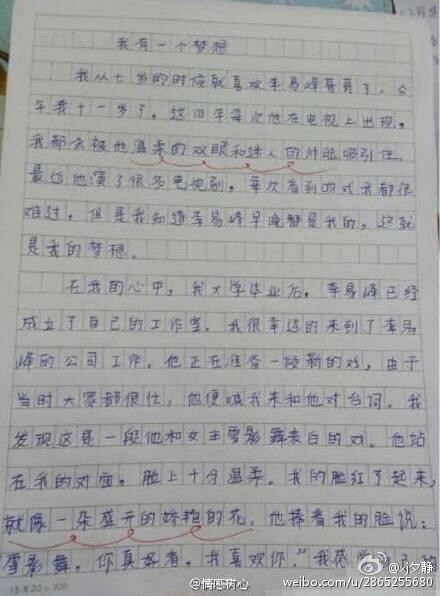 我有一个梦想
我从七岁的时候就喜欢李易峰哥哥了，今
年我十一岁了。这四年每次他在电视上出现，
我都会被他温柔的双眼和迷人的帅脸吸引住，
最近他演了很多电视剧，每次看到吻戏我都很
难过，但是我知道李易峰早晚都是我的。这就
是我的梦想。
在我的心中，我大学毕业后，李易峰已经
成立了自己的工作室。我很幸运的来到了李易
峰的公司工作。他正在准备一段新的戏，由于
当时大家都很忙，他便喊我来和他对台词。我
发现这是一段他和女主雪影舞表白的戏。他站
在我的对面，脸上十分温柔。我的脸红了起来，
就像一朵盛开的娇艳的花。他捧着我的脸说：
雪影舞，你真好看，我喜欢你。”我感
15×20=300
@情感树心
weibo.com/u/2865255680